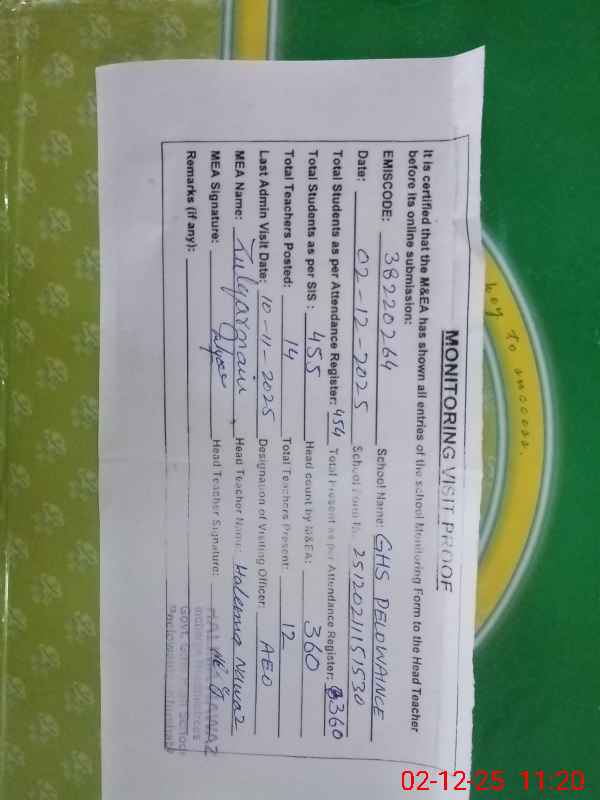 key to success.
MONITORING VISIT PROOF
It is certified that the M&EA has shown all entries of the school Monitoring Form to the Head Teacher
before its online submission:
EMISCODE: 38220264 School Name: GHS PELOWAINCE
Date: 02-12-2025 School Form No. 25120211151530
Total Students as per Attendance Register: 454 Total Present as per Attendance Register: 360
Total Students as per SIS: 455 Head count by M&EA: 360
Total Teachers Posted: 14 Total Teachers Present: 12
Last Admin Visit Date: 10-11-2025 Designation of Visiting Officer: AEO
MEA Name: Head Teacher Name: Haleema Nawaz
MEA Signature: Head Teacher Signature:
Remarks (if any):
02-12-25 11:20